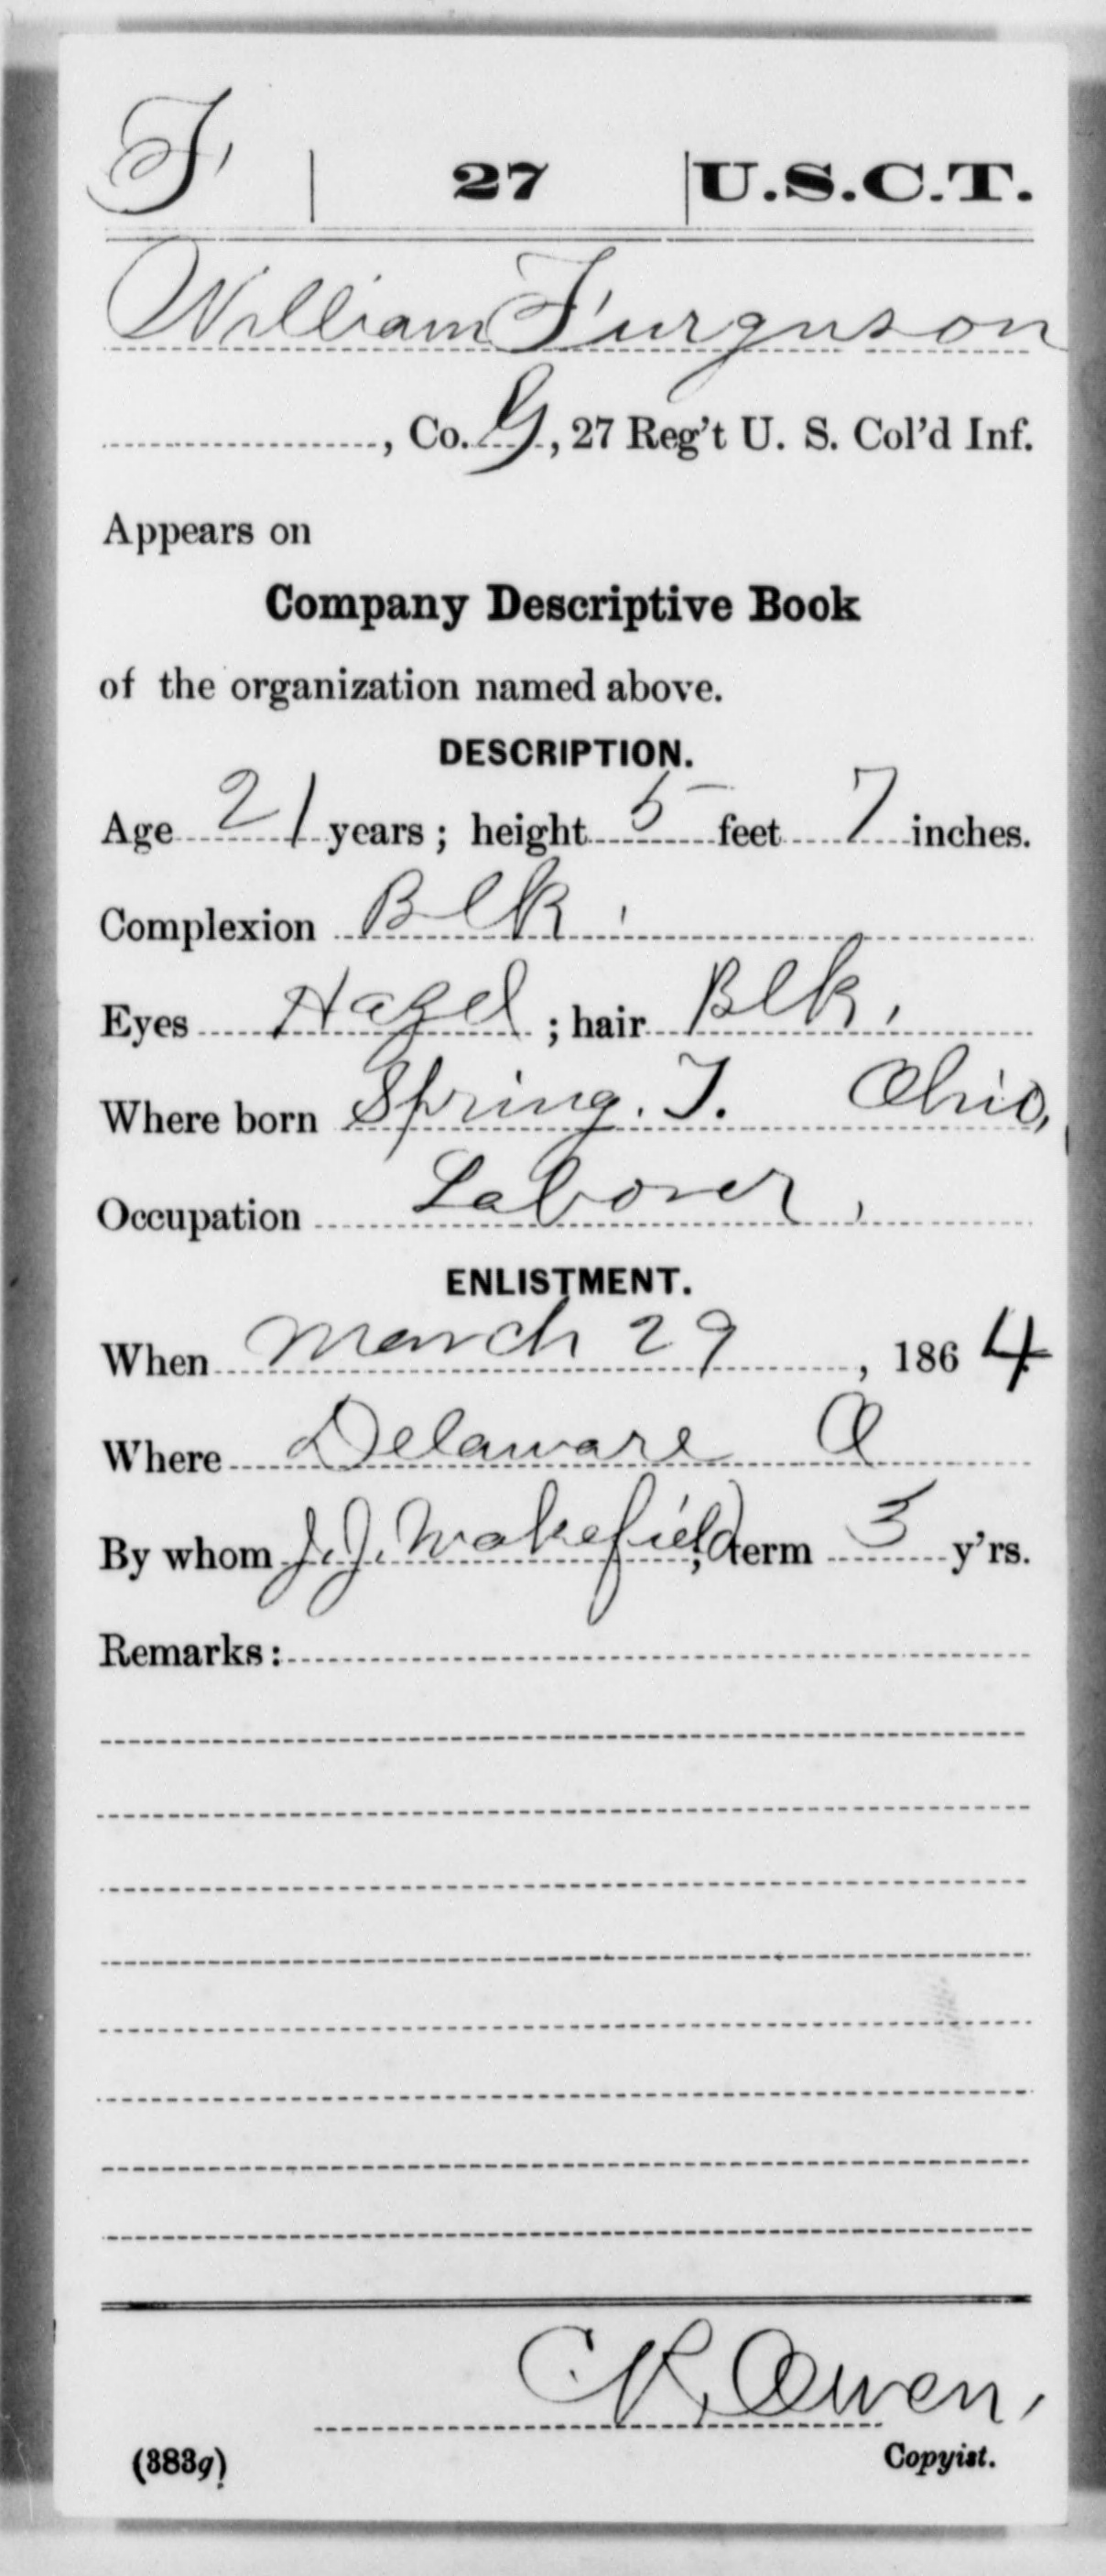 F | 27 | U.S.C.T.
William Furguson
, Co. G, 27 Reg't U. S. Col'd Inf.
Appears on
Company Descriptive Book
of the organization named above.
DESCRIPTION.
Age 21 years; height 5 feet 7 inches.
Complexion Blk.
Eyes Hazel; hair Blk.
Where born Spring. T. Ohio,
Occupation Laborer,
ENLISTMENT.
When March 29, 1864
Where Delaware O
By whom J. J. Wakefield; term 3 y'rs.
Remarks:
C. R. Owen,
(383g) Copyist.